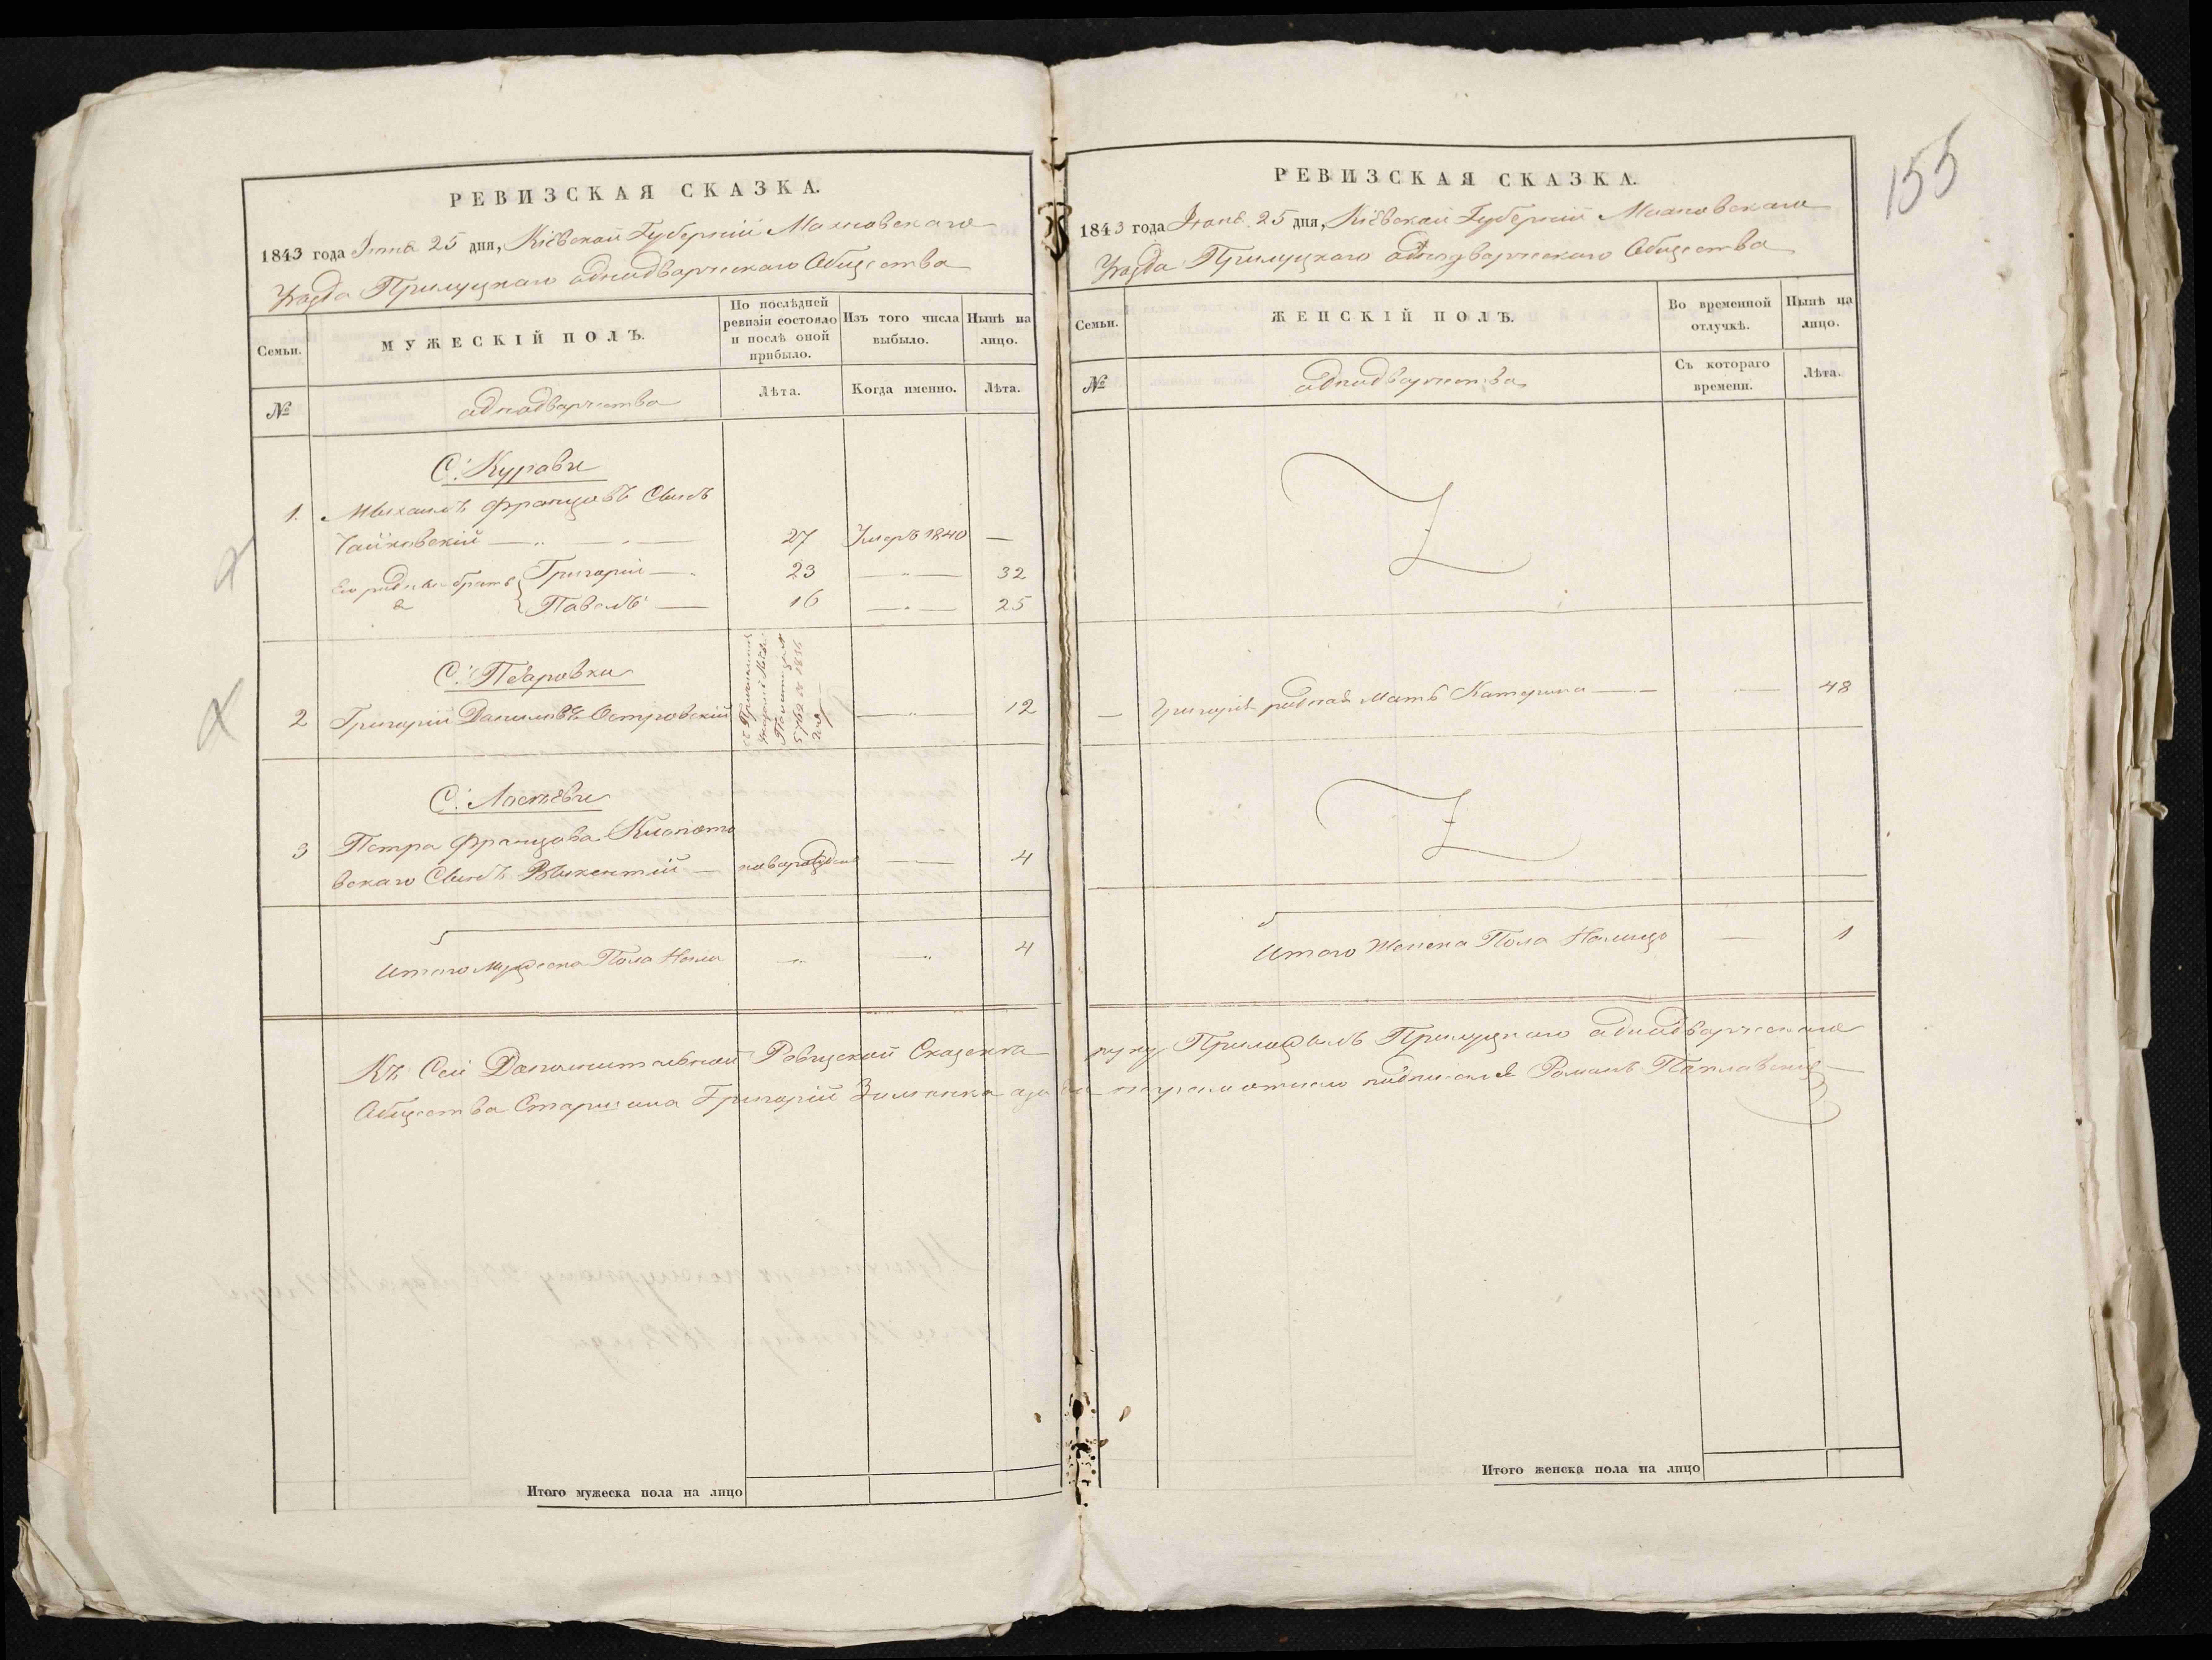 155
РЕВИЗСКАЯ СКАЗКА.
1843 года 25 дня, Кіевской Губерніи Махновскаго
Уѣзда Прилуцкаго однодворческаго Общества
Семьи.
МУЖЕСКІЙ ПОЛЪ.
По послѣдней ревизіи состояло и послѣ оной прибыло.
Изъ того числа выбыло.
Нынѣ на лицо.
№
однодворчества
Лѣта.
Когда именно.
Лѣта.
С: Журавки
1. Михаилъ Францовъ Сынъ
Чайковскій 27 Умеръ 1840 —
Его родные братья Григорій — 23 — 32
2 Павелъ — 16 — 25
С: Пеаровки
2 Григорій Даниловъ Островскій — 12
С: Лостѣвки
3 Петра Францова
вскаго Сынъ Викентій — новорожденъ — 4
Итого мужеска Пола Нали — — 4
Итого мужеска пола на лицо
РЕВИЗСКАЯ СКАЗКА.
1843 года 25 дня, Кіевской Губерніи Махновскаго
Уѣзда Прилуцкаго однодворческаго Общества
Семьи.
ЖЕНСКІЙ ПОЛЪ.
Во временной отлучкѣ.
Нынѣ на лицо.
№
однодворчества
Съ котораго времени.
Лѣта.
— Григорія родная Мать Катерина — — 48
Итого Женска Пола Налицо — 1
Къ Сей Дополнительной Ревизской Сказки руку Приложилъ Прилуцкаго однодворческаго
Общества Старшина Григорій подписался Романъ
Итого женска пола на лицо